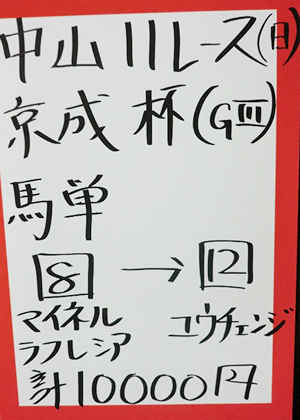 中山11レース(日)
京成杯(GⅢ)
馬単
8 → 12
マイネル ユウチェンジ
ラフレシア
計10000円